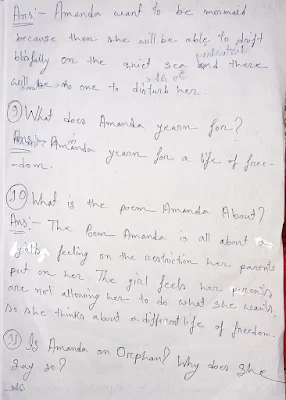 Ans:- Amanda want to be mermaid
because then she will be able to drift
blissfully on the quiet sea and there
will be no one to disturb her.
9) What does Amanda yearn for?
Ans:- Amanda yearn for a life of free-
-dom.
10) What is the poem Amanda About?
Ans:- The Poem Amanda is all about a
girl's feeling on the restriction her parents
put on her. The girl feels her parents
are not allowing her to do what she wants.
so she thinks about a different life of freedom.
11) Is Amanda an Orphan? Why does she
say so?